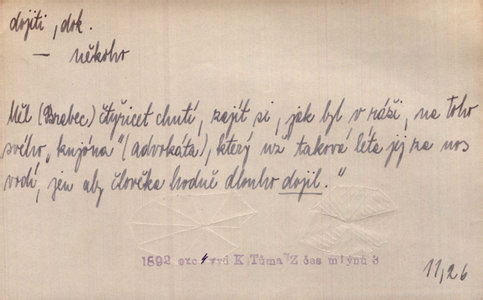 dojiti, dok.
— někoho
Měl (Brabec) čtyřicet chutí, zajít si, jak byl v ráži, na toho
svého „kujóna" (advokáta), který už taková léta jej za nos
vodí, jen aby člověka hodně dlouho dojil."
1892 exc. vyd K. Tůma Z čes mlýnů 3
11,26